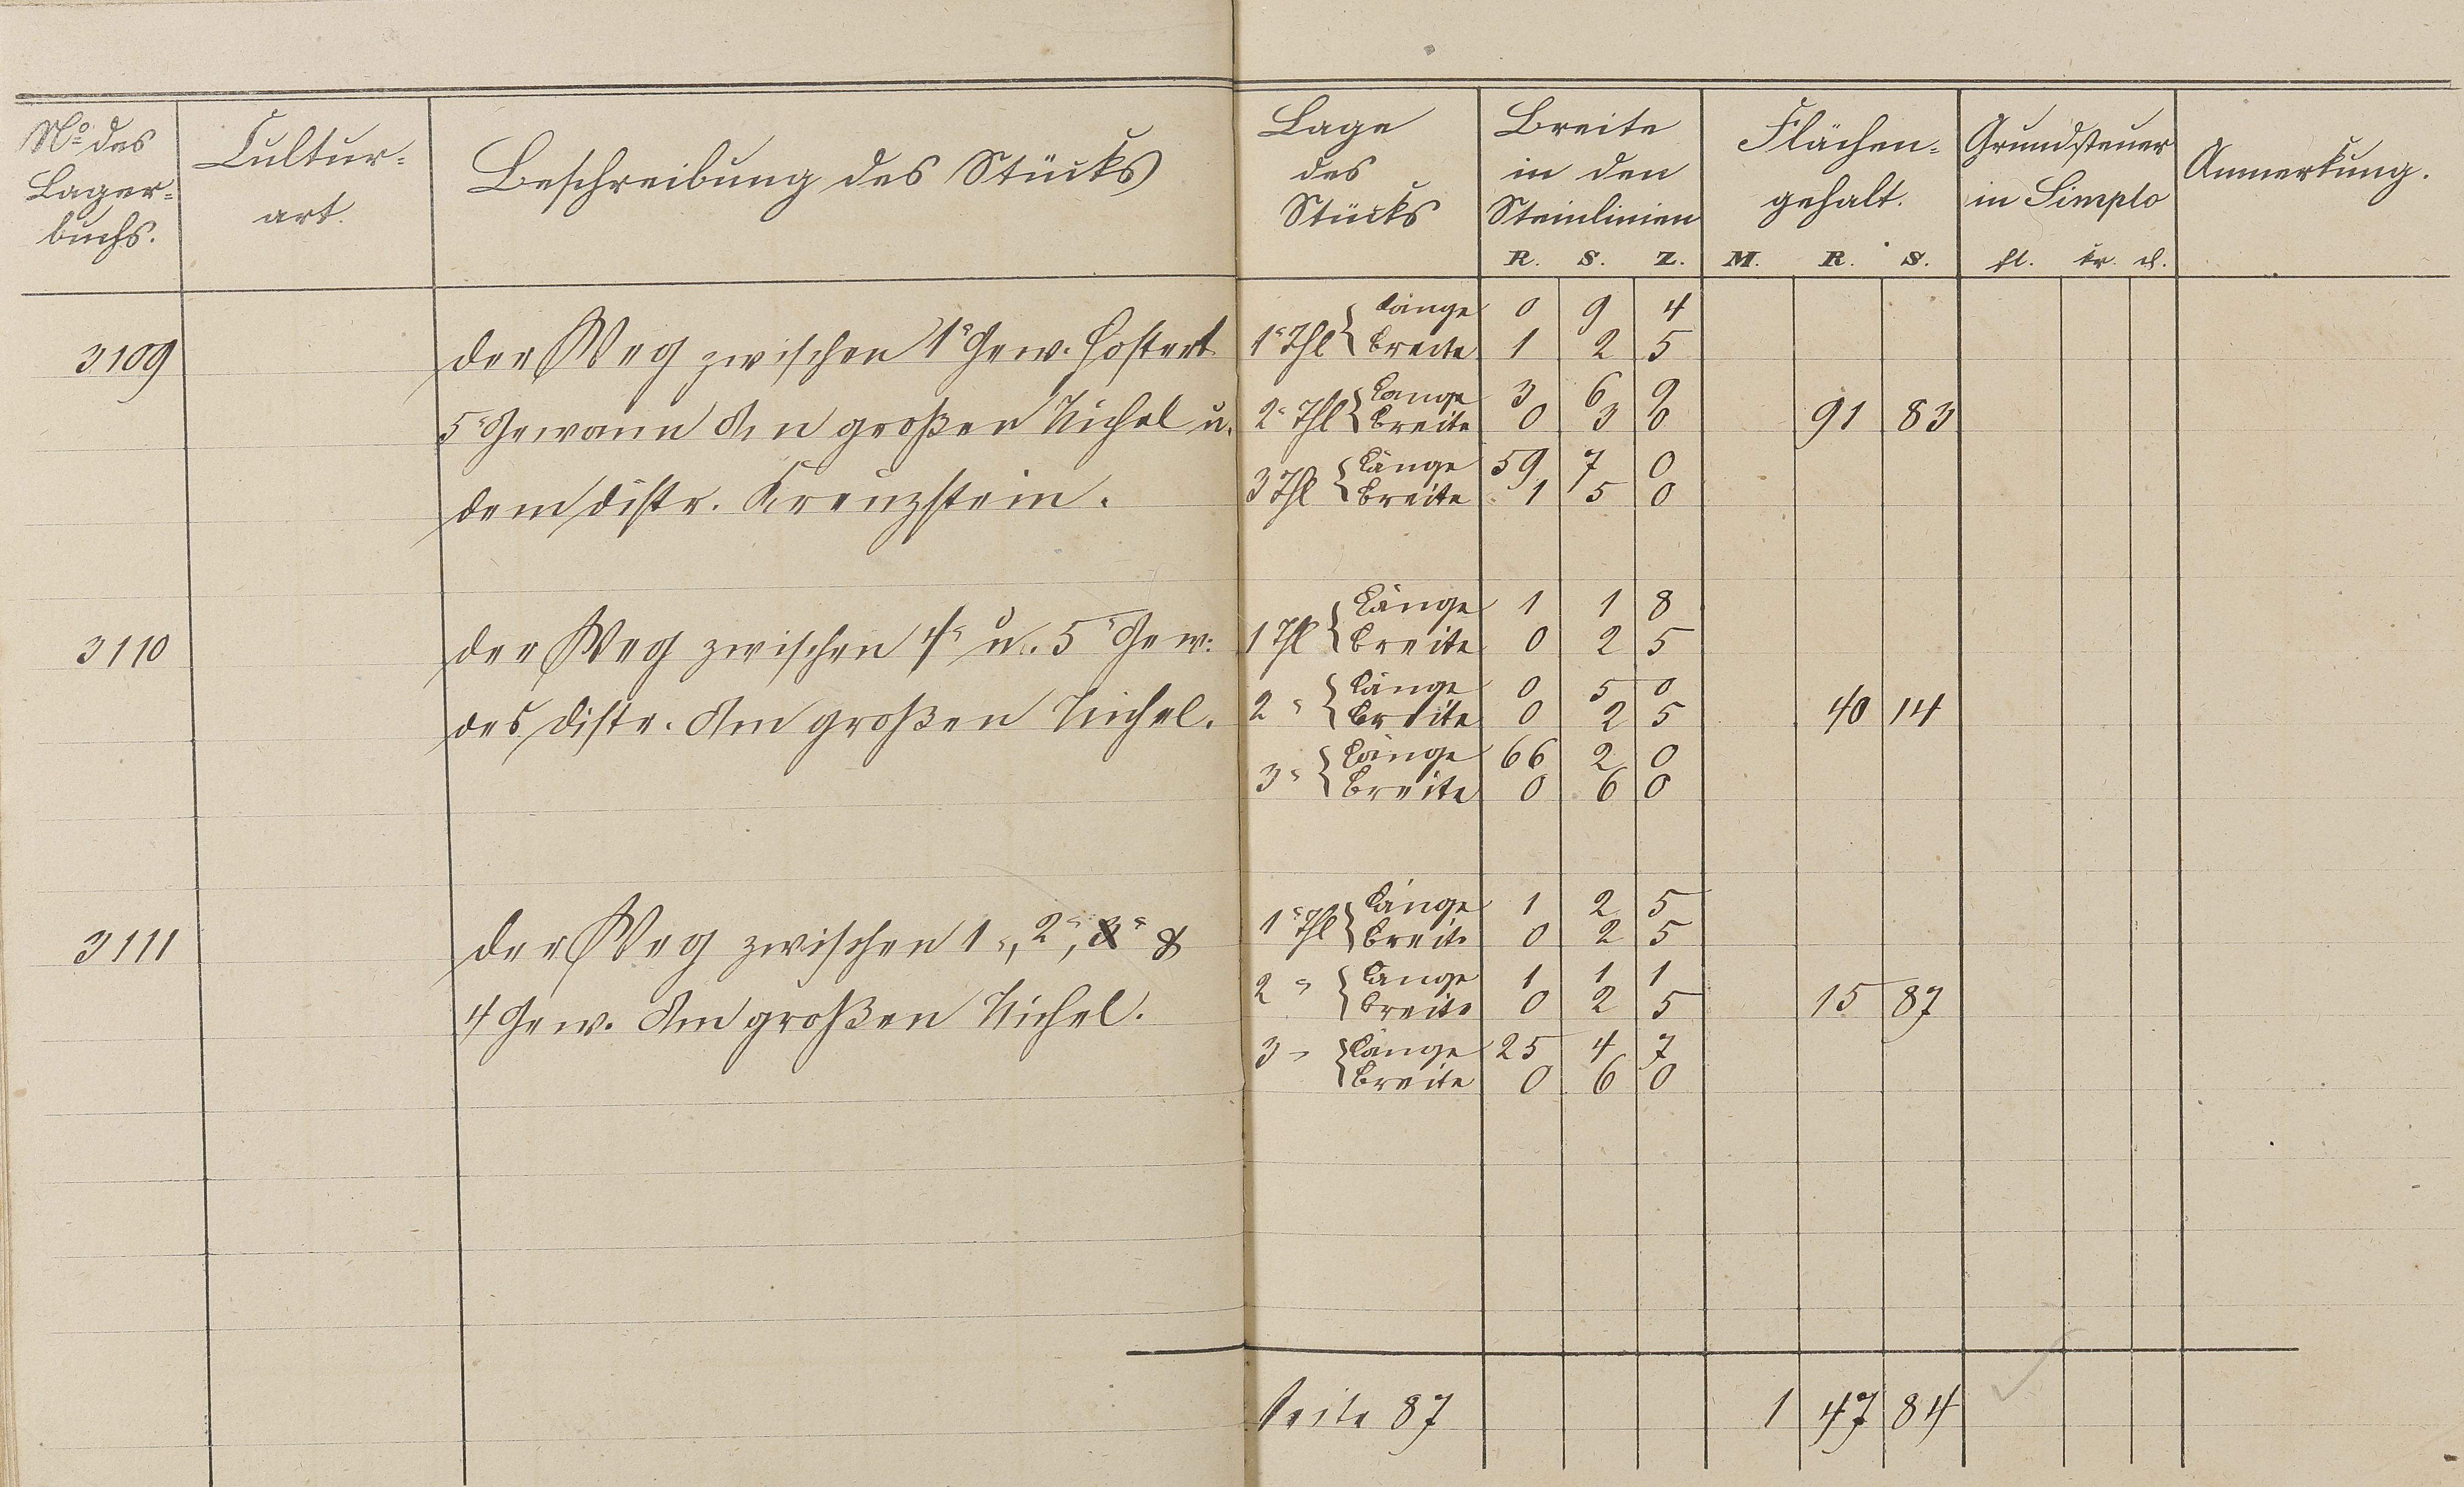 No des Lagerbuchs.
Culturart.
Beschreibung des Stücks
Lage des Stücks
Breite in den Steinlinien
R. S. Z.
Flächengehalt.
M. R. S.
Grundsteuer in Simplo
fl. kr. d.
Anmerkung.
3109 der Weg zwischen 1r Gew. Hostert 1r Thl Länge 0 9 4
breite 1 2 5
5r Gewann Am großen Michel u. 2r Thl Länge 3 6 9
breite 0 3 0 91 83
dem distr. Kreuzstein. 3 Thl Länge 59 7 0
breite 1 5 0
3110 der Weg zwischen 4r u. 5r Gew: 1 Thl Länge 1 1 8
breite 0 2 5
des distr. Am großen Michel. 2r Länge 0 5 0
breite 0 2 5 40 14
3r Länge 66 2 0
breite 0 6 0
3111 der Weg zwischen 1r, 2r, 3r & 1r Thl Länge 1 2 5
breite 0 2 5
4 Gew. Am großen Michel. 2r Länge 1 1 1
breite 0 2 5 15 87
3r Länge 25 4 7
breite 0 6 0
Seite 87 1 47 84